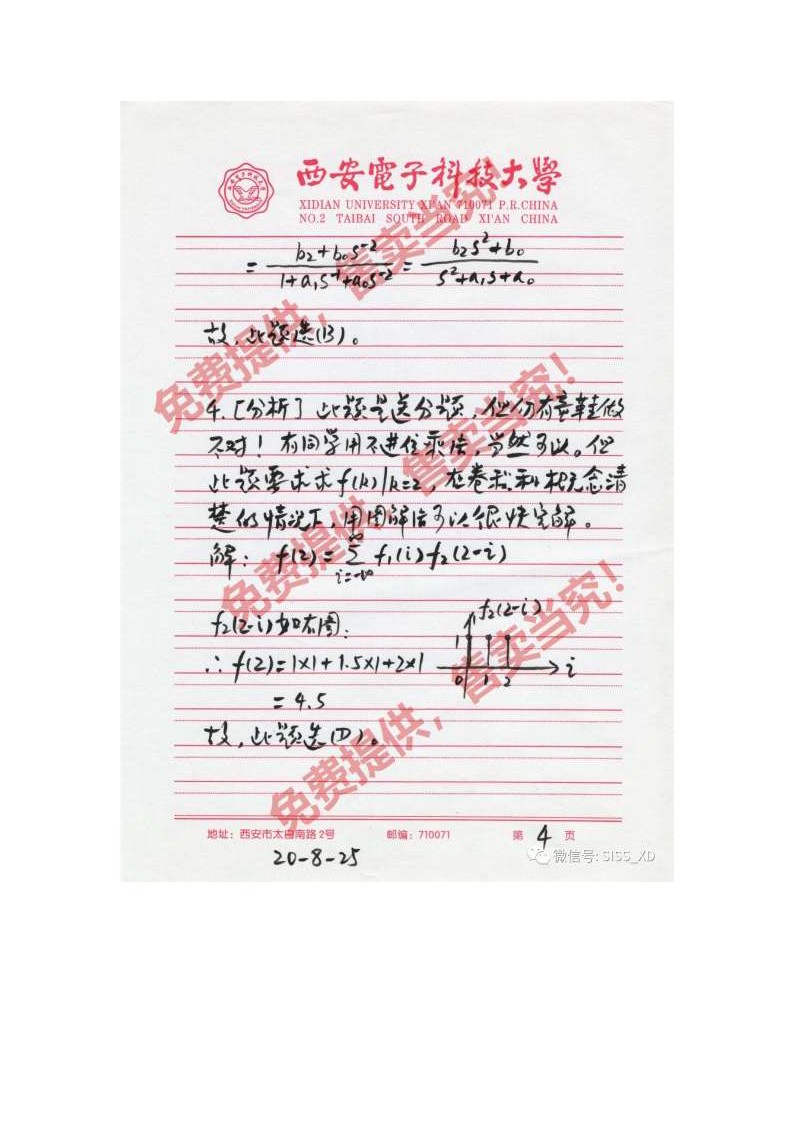 西安電子科技大學
XIDIAN UNIVERSITY XI'AN 710071 P.R.CHINA
NO.2 TAIBAI SOUTH ROAD XI'AN CHINA
= (b₂+b₀s⁻²)/(1+a₁s⁻¹+a₀s⁻²) = (b₂s²+b₀)/(s²+a₁s+a₀)
故,此题选(B)。
4.[分析] 此题是送分题,但仍有童鞋做
不对!有同学用不进位乘法,当然可以。但
此题要求求f(k)|k=2,在卷积和概念清
楚的情况下,用图解法可以很快完解。
解: f(2)=∑_{i=-∞}^{∞} f₁(i)f₂(2-i)
f₂(2-i)如右图:
f₂(2-i)
1
0 1 2
i
∴ f(2)=1×1+1.5×1+2×1
=4.5
故,此题选(D)。
免费提供,售卖当究!
免费提供,售卖当究!
免费提供,售卖当究!
地址:西安市太白南路2号 邮编:710071 第 4 页
20-8-25
微信号: SIS5_XD